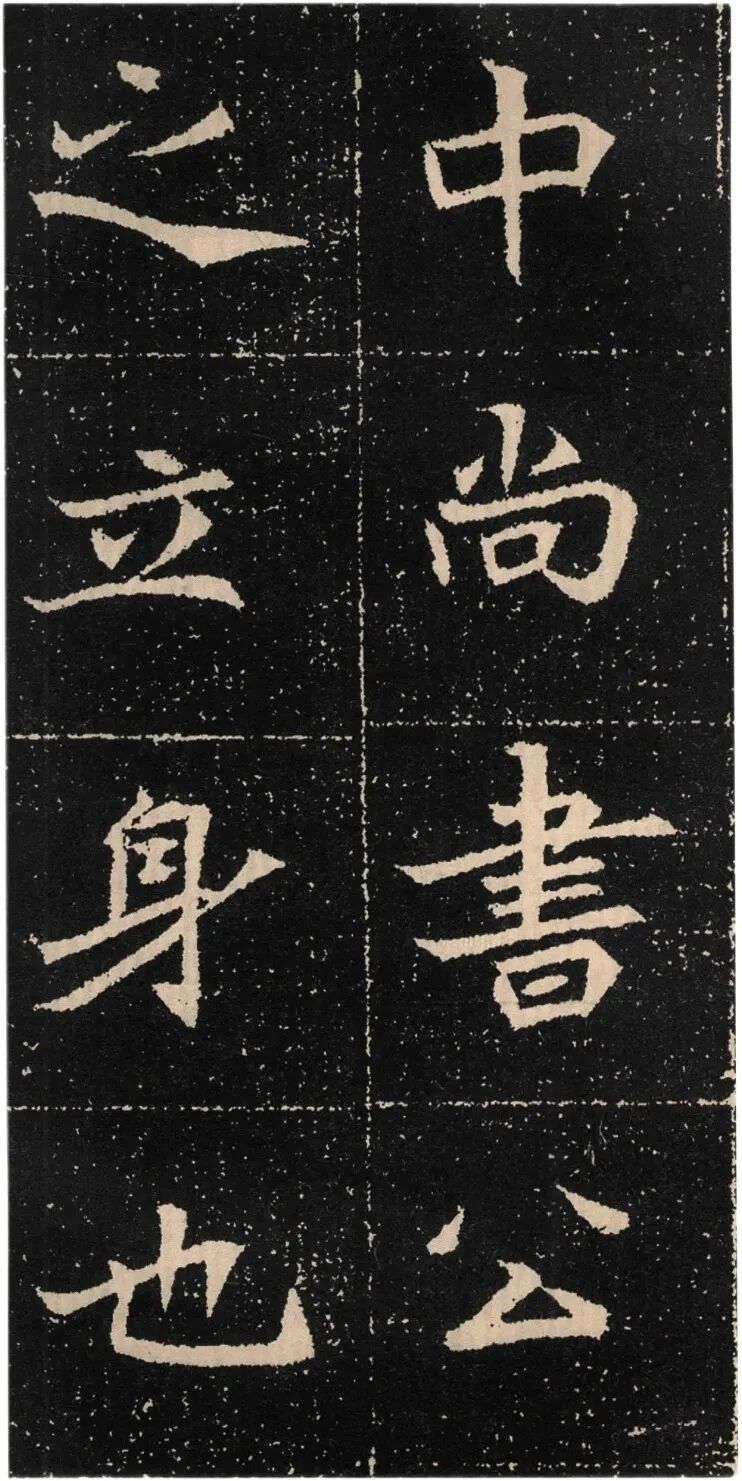 中尚書公
之立身也